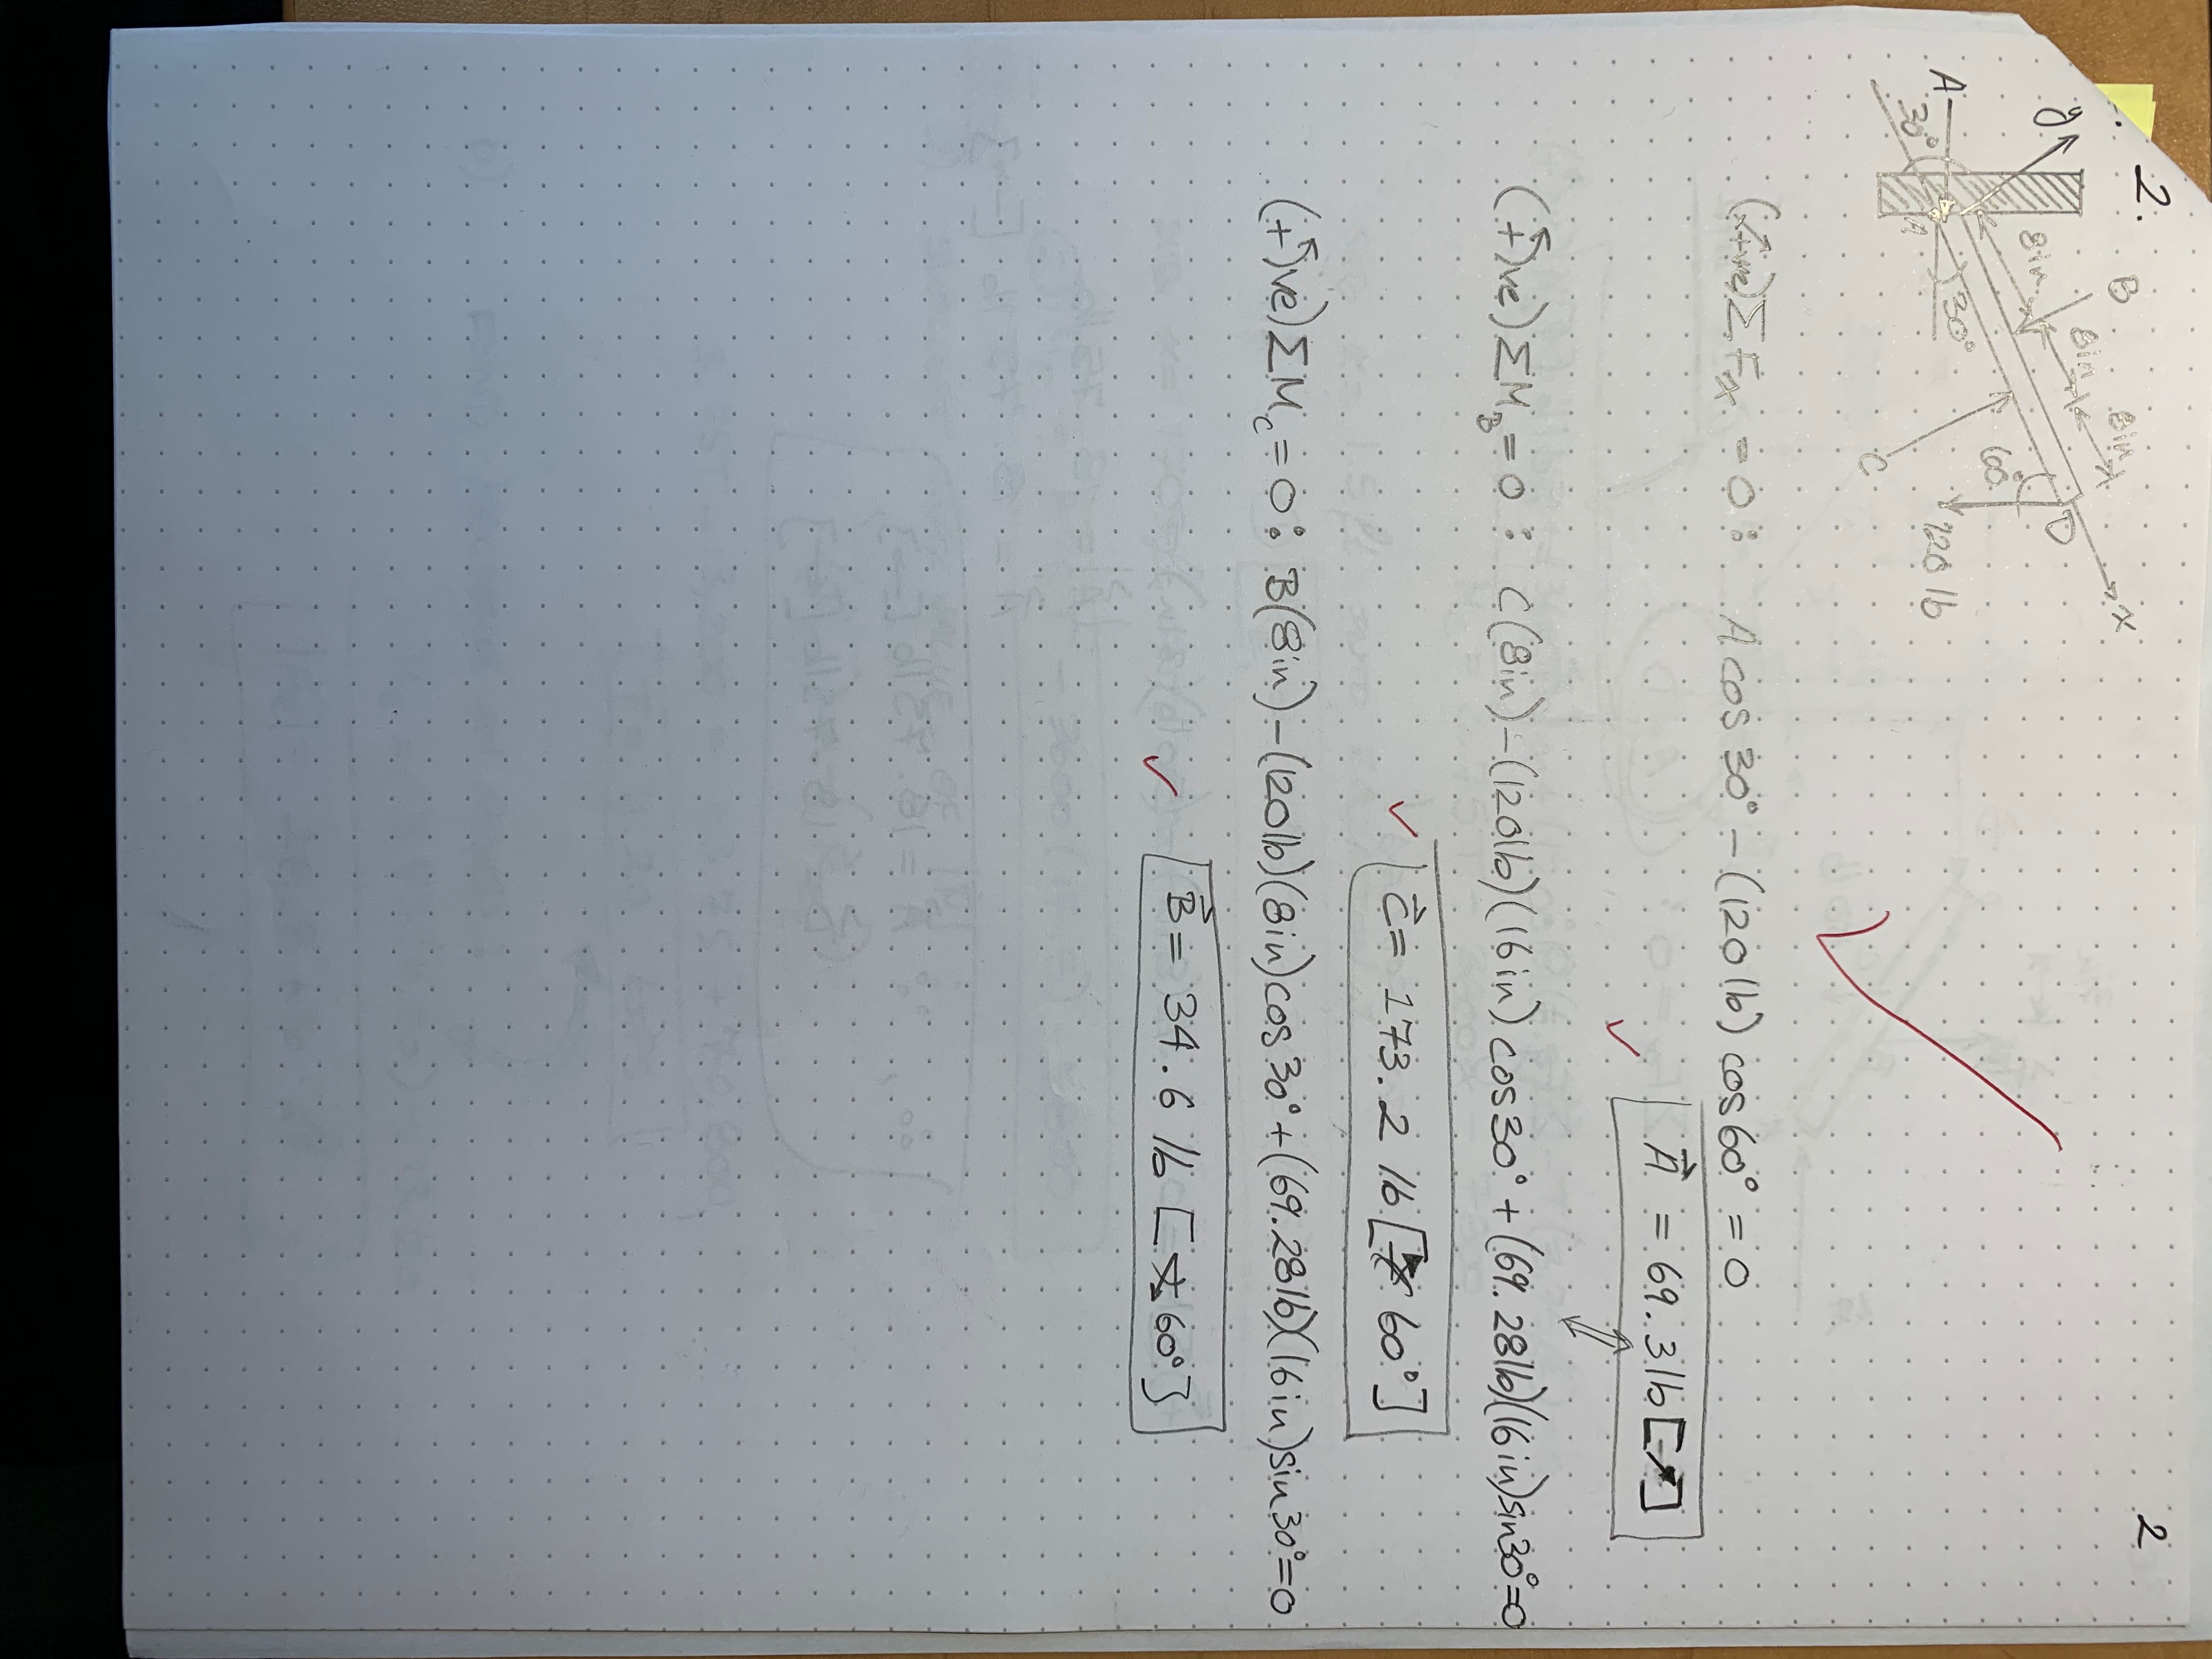 2.
2
y
B
8in
8in
8in
x
A
30°
A
30°
D
60°
C
120 lb
(↗+ve) ΣFx = 0: A cos 30° - (120 lb) cos 60° = 0
A⃗ = 69.3 lb [→]
(+↶ve) ΣM_B = 0: C(8in) - (120lb)(16in) cos 30° + (69.28lb)(8in) sin 30° = 0
C⃗ = 173.2 lb [60°]
(+↶ve) ΣM_C = 0: B(8in) - (120lb)(8in) cos 30° + (69.28lb)(16in) sin 30° = 0
B⃗ = 34.6 lb [60°]